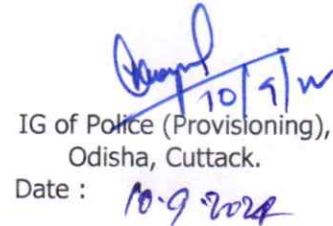 10/9/24
IG of Police (Provisioning),
Odisha, Cuttack.
Date : 10.9.2024